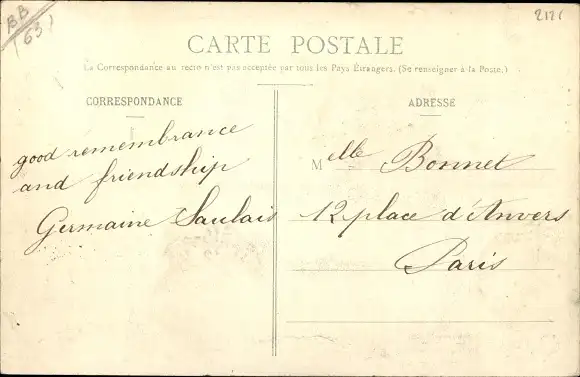 BB
(63)
2121
CARTE POSTALE
La Correspondance au recto n'est pas acceptée par tous les Pays Étrangers. (Se renseigner à la Poste.)
CORRESPONDANCE
good remembrance
and friendship
Germaine Saulais
ADRESSE
Melle Bonnet
12 place d'Anvers
Paris